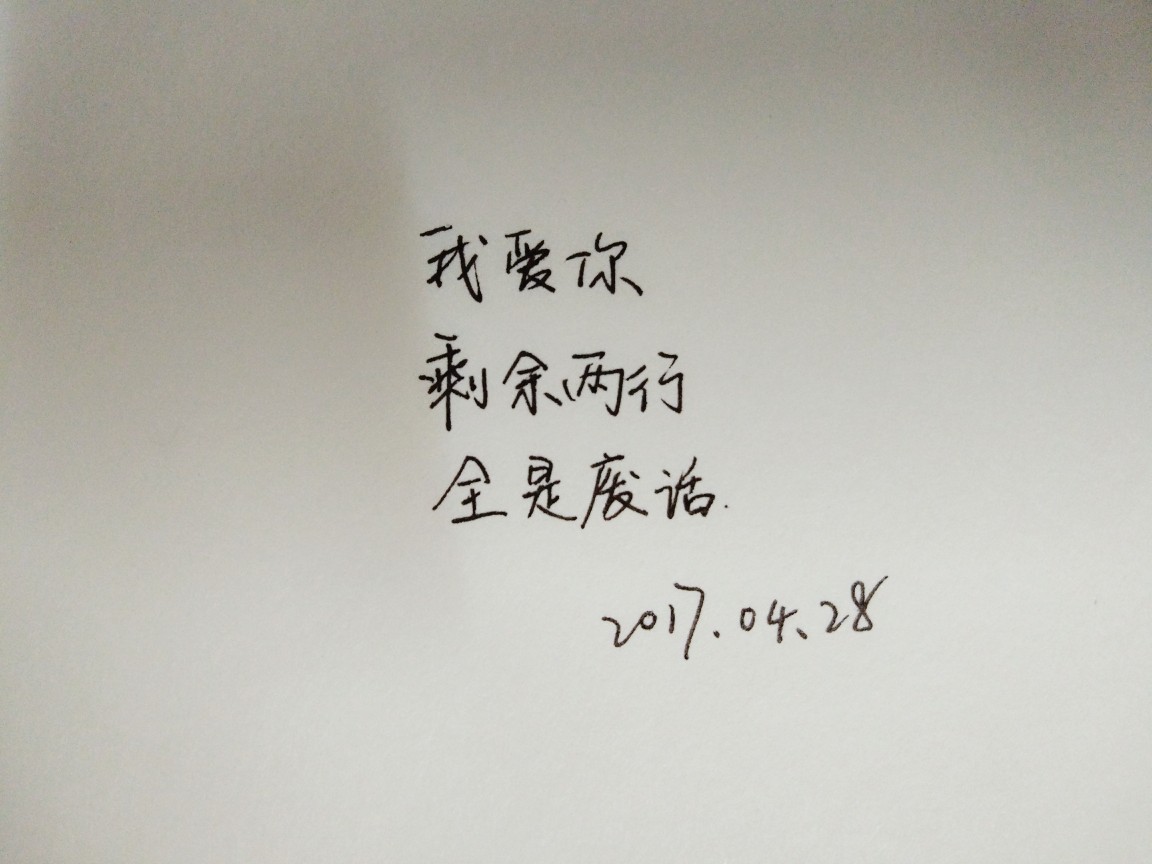 我爱你
剩余两行
全是废话.
2017.04.28